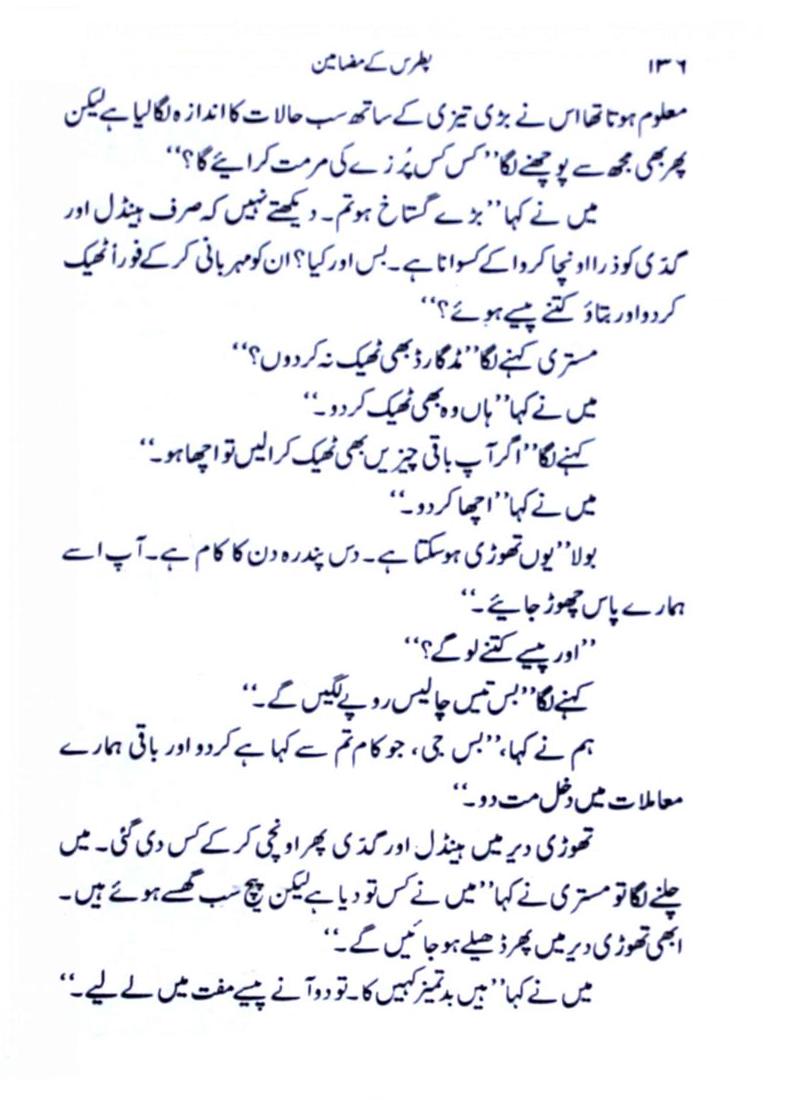 ۱۳۶ پطرس کے مضامین
معلوم ہوتا تھا اس نے بڑی تیزی کے ساتھ سب حالات کا اندازہ لگا لیا ہے لیکن
پھر بھی مجھ سے پوچھنے لگا’’کس کس پُرزے کی مرمت کرائیے گا؟‘‘
میں نے کہا’’بڑے گستاخ ہو تم۔ دیکھتے نہیں کہ صرف ہینڈل اور
گدّی کو ذرا اونچا کروا کے کسوانا ہے۔ بس اور کیا؟ ان کو مہربانی کر کے فوراً ٹھیک
کردو اور بتاؤ کتنے پیسے ہوئے؟‘‘
مستری کہنے لگا’’مڈگارڈ بھی ٹھیک نہ کردوں؟‘‘
میں نے کہا’’ہاں وہ بھی ٹھیک کردو۔‘‘
کہنے لگا’’اگر آپ باقی چیزیں بھی ٹھیک کرالیں تو اچھا ہو۔‘‘
میں نے کہا’’اچھا کردو۔‘‘
بولا’’یوں تھوڑی ہوسکتا ہے۔ دس پندرہ دن کا کام ہے۔ آپ اسے
ہمارے پاس چھوڑ جایئے۔‘‘
’’اور پیسے کتنے لو گے؟‘‘
کہنے لگا’’بس تیس چالیس روپے لگیں گے۔‘‘
ہم نے کہا،’’بس جی، جو کام تم سے کہا ہے کردو اور باقی ہمارے
معاملات میں دخل مت دو۔‘‘
تھوڑی دیر میں ہینڈل اور گدّی پھر اونچی کر کے کس دی گئی۔ میں
چلنے لگا تو مستری نے کہا’’میں نے کس تو دیا ہے لیکن پیچ سب گھسے ہوئے ہیں۔
ابھی تھوڑی دیر میں پھر ڈھیلے ہو جائیں گے۔‘‘
میں نے کہا’’ہیں بدتمیز کہیں کا۔ تو دو آنے پیسے مفت میں لے لیے۔‘‘